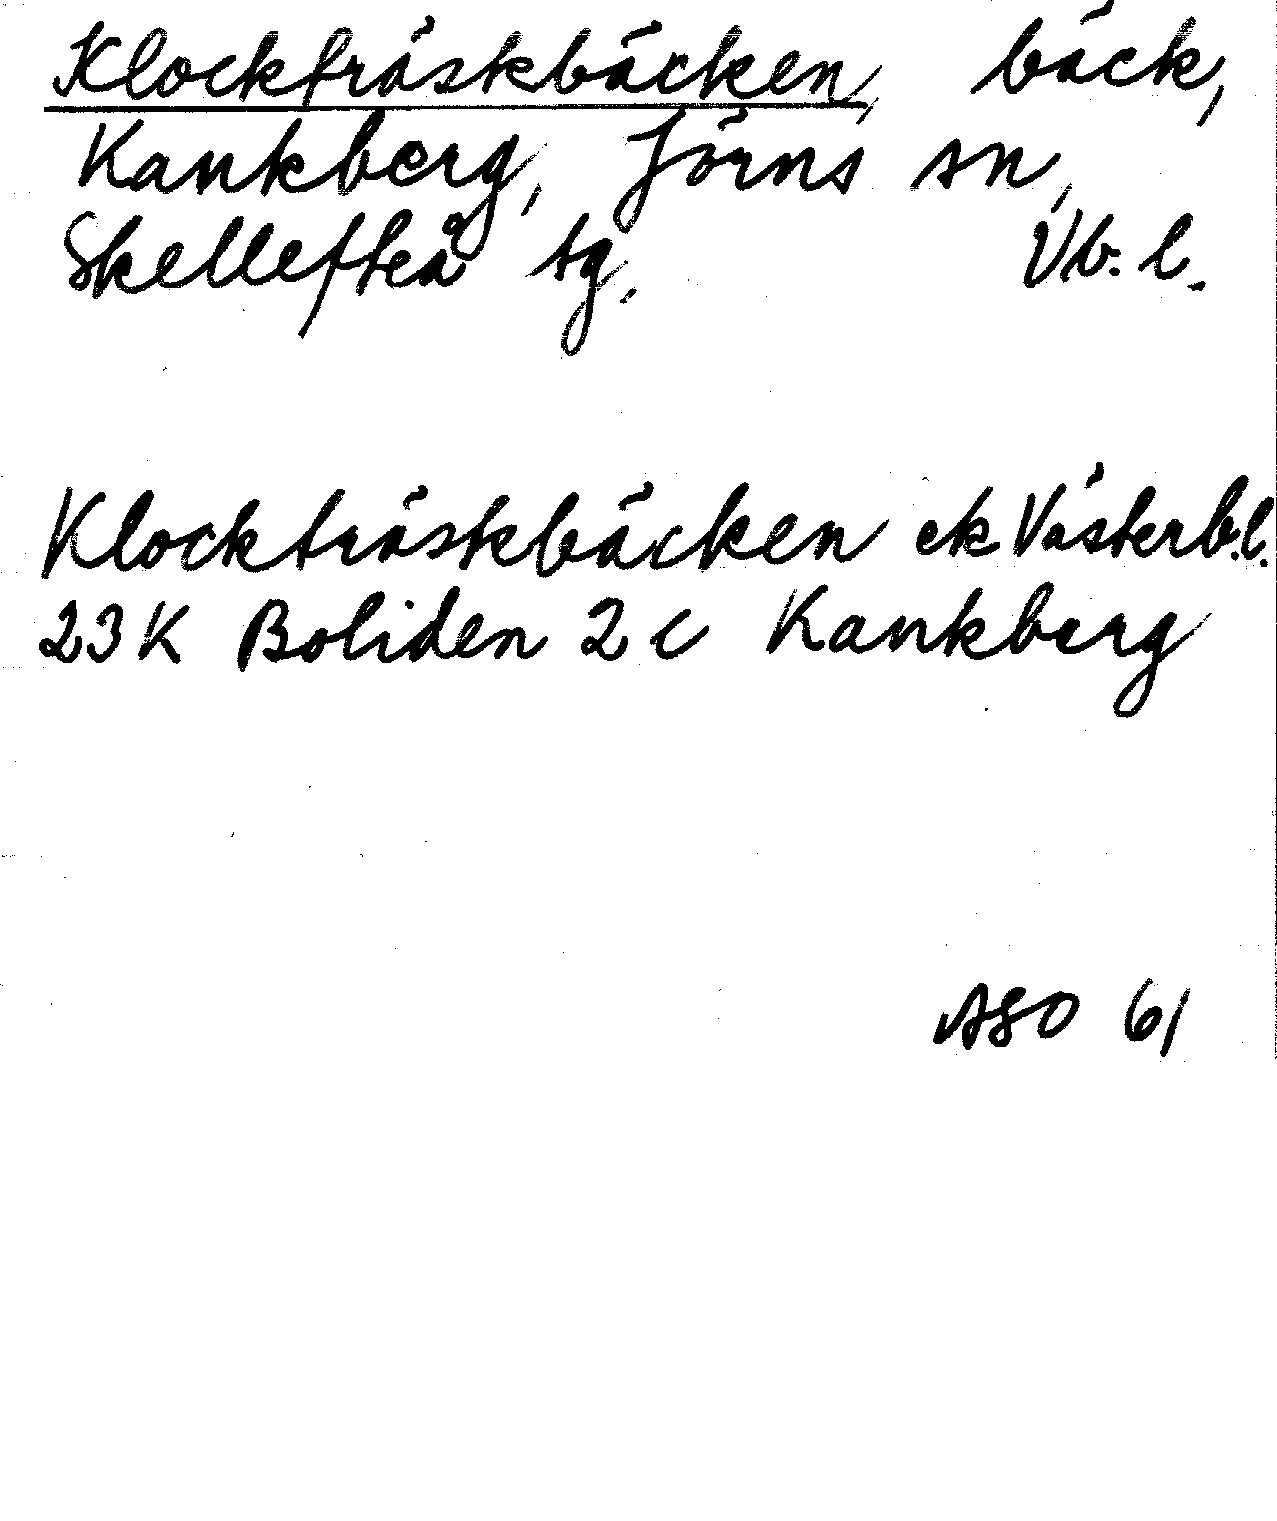 Klockträskbäcken, bäck,
Kankberg, Jörns sn,
Skellefteå tg. Vb. l.
Klockträskbäcken ek Västerb.l.
23K Boliden 2 c Kankberg
ASO 61